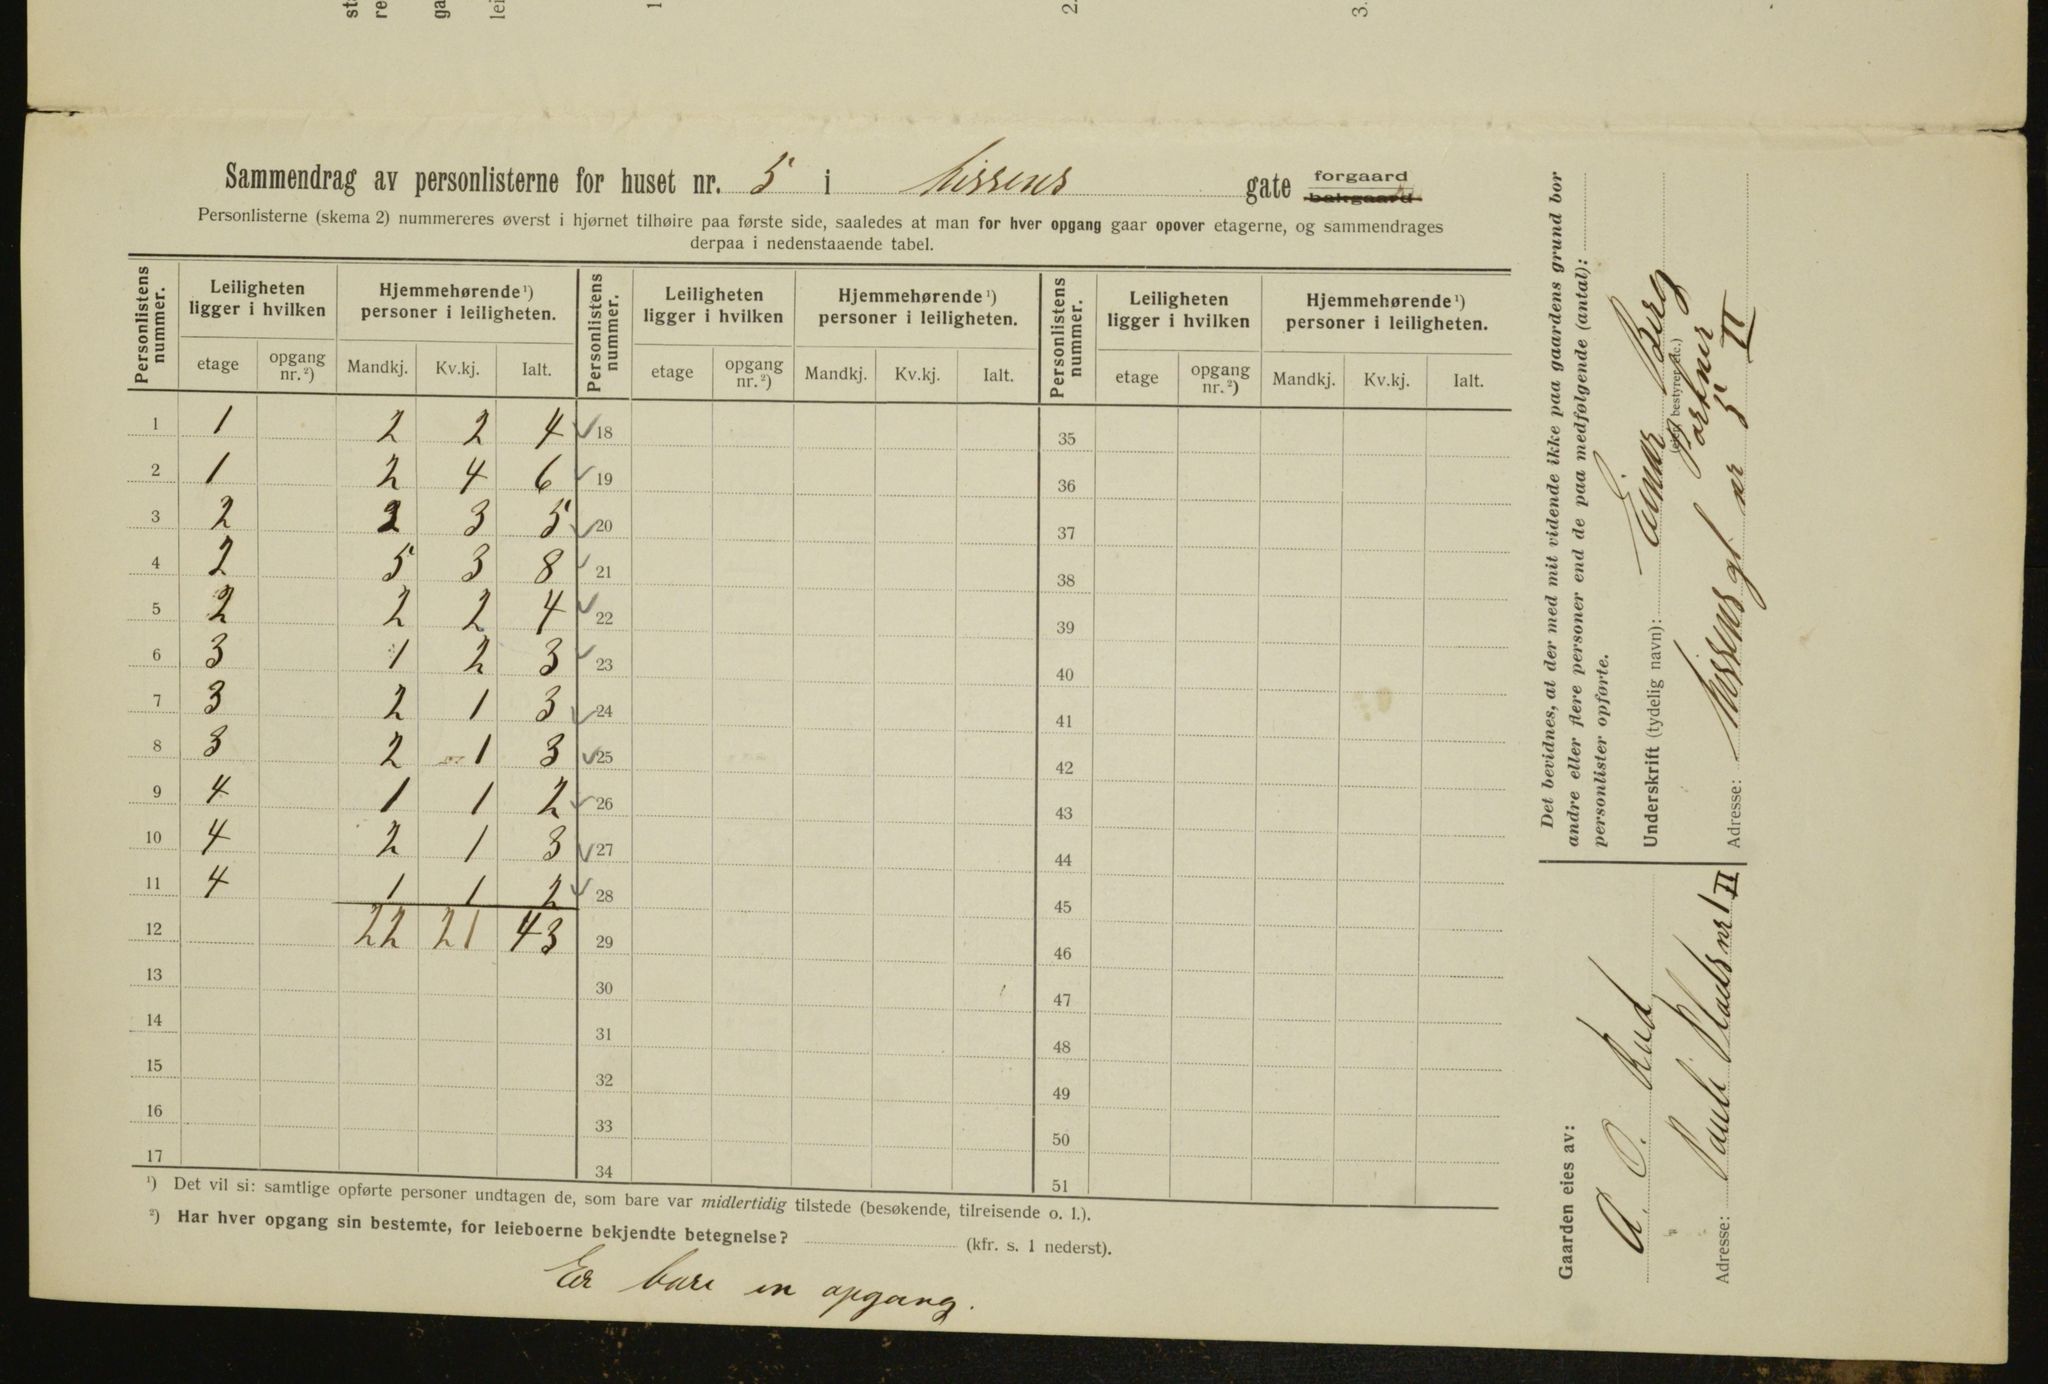 Sammendrag av personlisterne for huset nr. 5 i Nissens gate forgaard
bakgaard
Personlisterne (skema 2) nummereres øverst i hjørnet tilhøire paa første side, saaledes at man for hver opgang gaar opover etagerne, og sammendrages
derpaa i nedenstaaende tabel.
Personlistens nummer. Leiligheten ligger i hvilken Hjemmehørende ¹) personer i leiligheten. Personlistens nummer. Leiligheten ligger i hvilken Hjemmehørende ¹) personer i leiligheten. Personlistens nummer. Leiligheten ligger i hvilken Hjemmehørende ¹) personer i leiligheten.
etage opgang nr. ²) Mandkj. Kv.kj. Ialt. etage opgang nr. ²) Mandkj. Kv.kj. Ialt. etage opgang nr. ²) Mandkj. Kv.kj. Ialt.
1 1 2 2 4 ✓ 18 35
2 1 2 4 6 ✓ 19 36
3 2 2 3 5 ✓ 20 37
4 2 5 3 8 ✓ 21 38
5 2 2 2 4 ✓ 22 39
6 3 1 2 3 ✓ 23 40
7 3 2 1 3 ✓ 24 41
8 3 2 1 3 ✓ 25 42
9 4 1 1 2 ✓ 26 43
10 4 2 1 3 ✓ 27 44
11 4 1 1 2 ✓ 28 45
12 22 21 43 29 46
13 30 47
14 31 48
15 32 49
16 33 50
17 34 51
¹) Det vil si: samtlige opførte personer undtagen de, som bare var midlertidig tilstede (besøkende, tilreisende o. l.).
²) Har hver opgang sin bestemte, for leieboerne bekjendte betegnelse? (kfr. s. 1 nederst).
Er bare en opgang.
Det bevidnes, at der med mit vidende ikke paa gaardens grund bor
andre eller flere personer end de paa medfølgende (antal):
personlister opførte.
Underskrift (tydelig navn): Einar Berg
(eier, bestyrer etc.)
Portner
Adresse: Nissens gt nr 5 II
Gaarden eies av:
A. O. Rud
Adresse: Pauls Plads nr 1 II
1 2. 3.